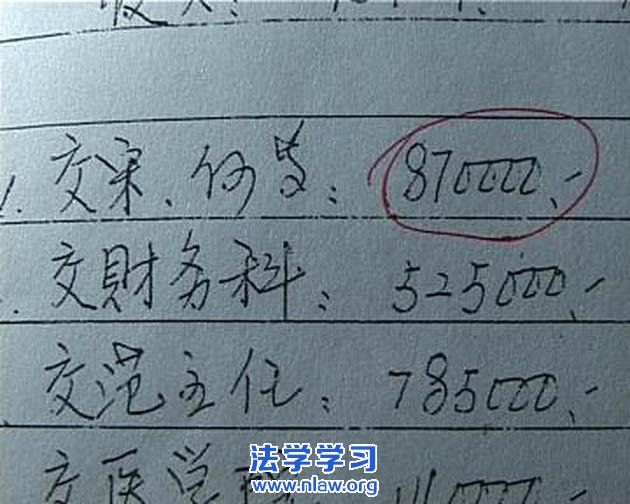 交宋、何等：870000.-
交财务科：525000.-
交范主任：785000.-
交医学
法学学习
www.nlaw.org